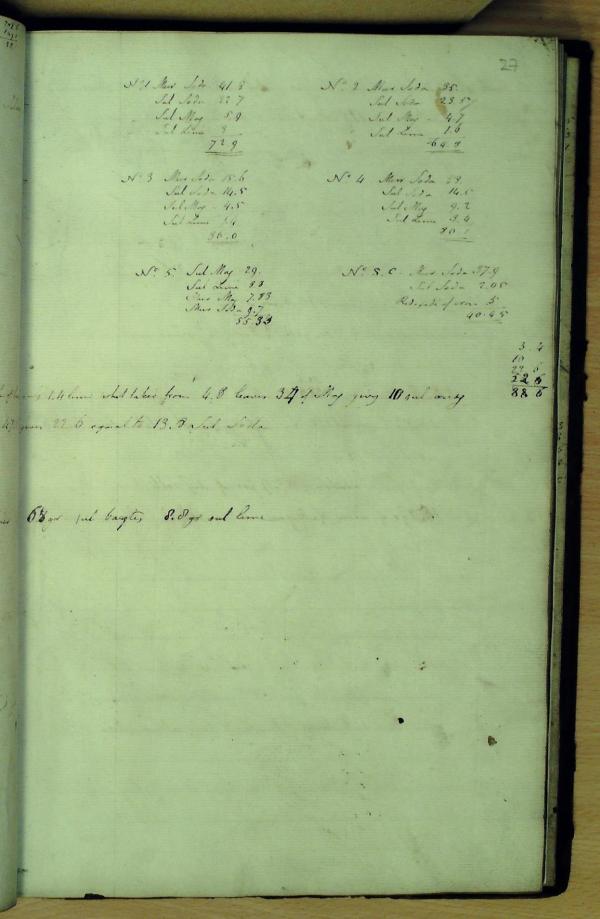 27
No 1 Mur Soda 41.5
Sul Soda 22.7
Sul Mag 5.9
Sul Lime 3
72 9
No 2 Mur Soda 35.
Sul Soda 23.5
Sul Mag - 4.7
Sul Lime 1.6
64.8
No 3 Mur Soda 15.6
Sul Soda 14.5
Sul Mag - 4.5
Sul Lime 1.4
36.0
No 4 Mur Soda
Sul Soda 14.5
Sul Mag 9.2
Sul Lime 3.4
No 5 Sul Mag 29.
Sul Lime
Mur Mag 7.83
Mur Soda 9.7
55.33
Mur Soda 37.9
Sul Soda 2.05
5
40.45
3.4
10
22 6
52 6
88 6
1.4 lime what taken from 4.8 leaves 34 of Mag giving 10 sul mag
22.6 equal to 13.8 Sul Soda
68 gr sul barytes 8.8 gr sul lime